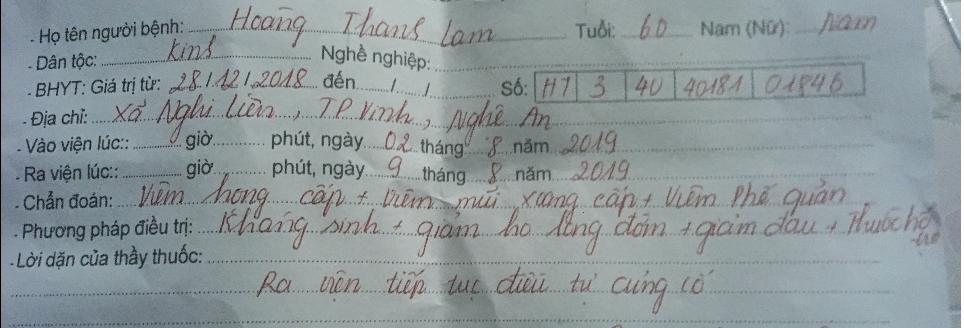 - Họ tên người bệnh: Hoàng Thanh Lam Tuổi: 60 Nam (Nữ): Nam
- Dân tộc: Kinh Nghề nghiệp:
- BHYT: Giá trị từ: 28/12/2018 đến / / Số: HT 3 40 40181 01846
- Địa chỉ: Xã Nghi Liên, TP Vinh, Nghệ An
- Vào viện lúc:: giờ phút, ngày 02 tháng 8 năm 2019
- Ra viện lúc:: giờ phút, ngày 9 tháng 8 năm 2019
- Chẩn đoán: Viêm họng cấp + viêm mũi xoang cấp + Viêm phế quản
- Phương pháp điều trị: Kháng sinh + giảm ho long đờm + giảm đau + Thuốc hỗ trợ
- Lời dặn của thầy thuốc:
Ra viện tiếp tục điều trị củng cố